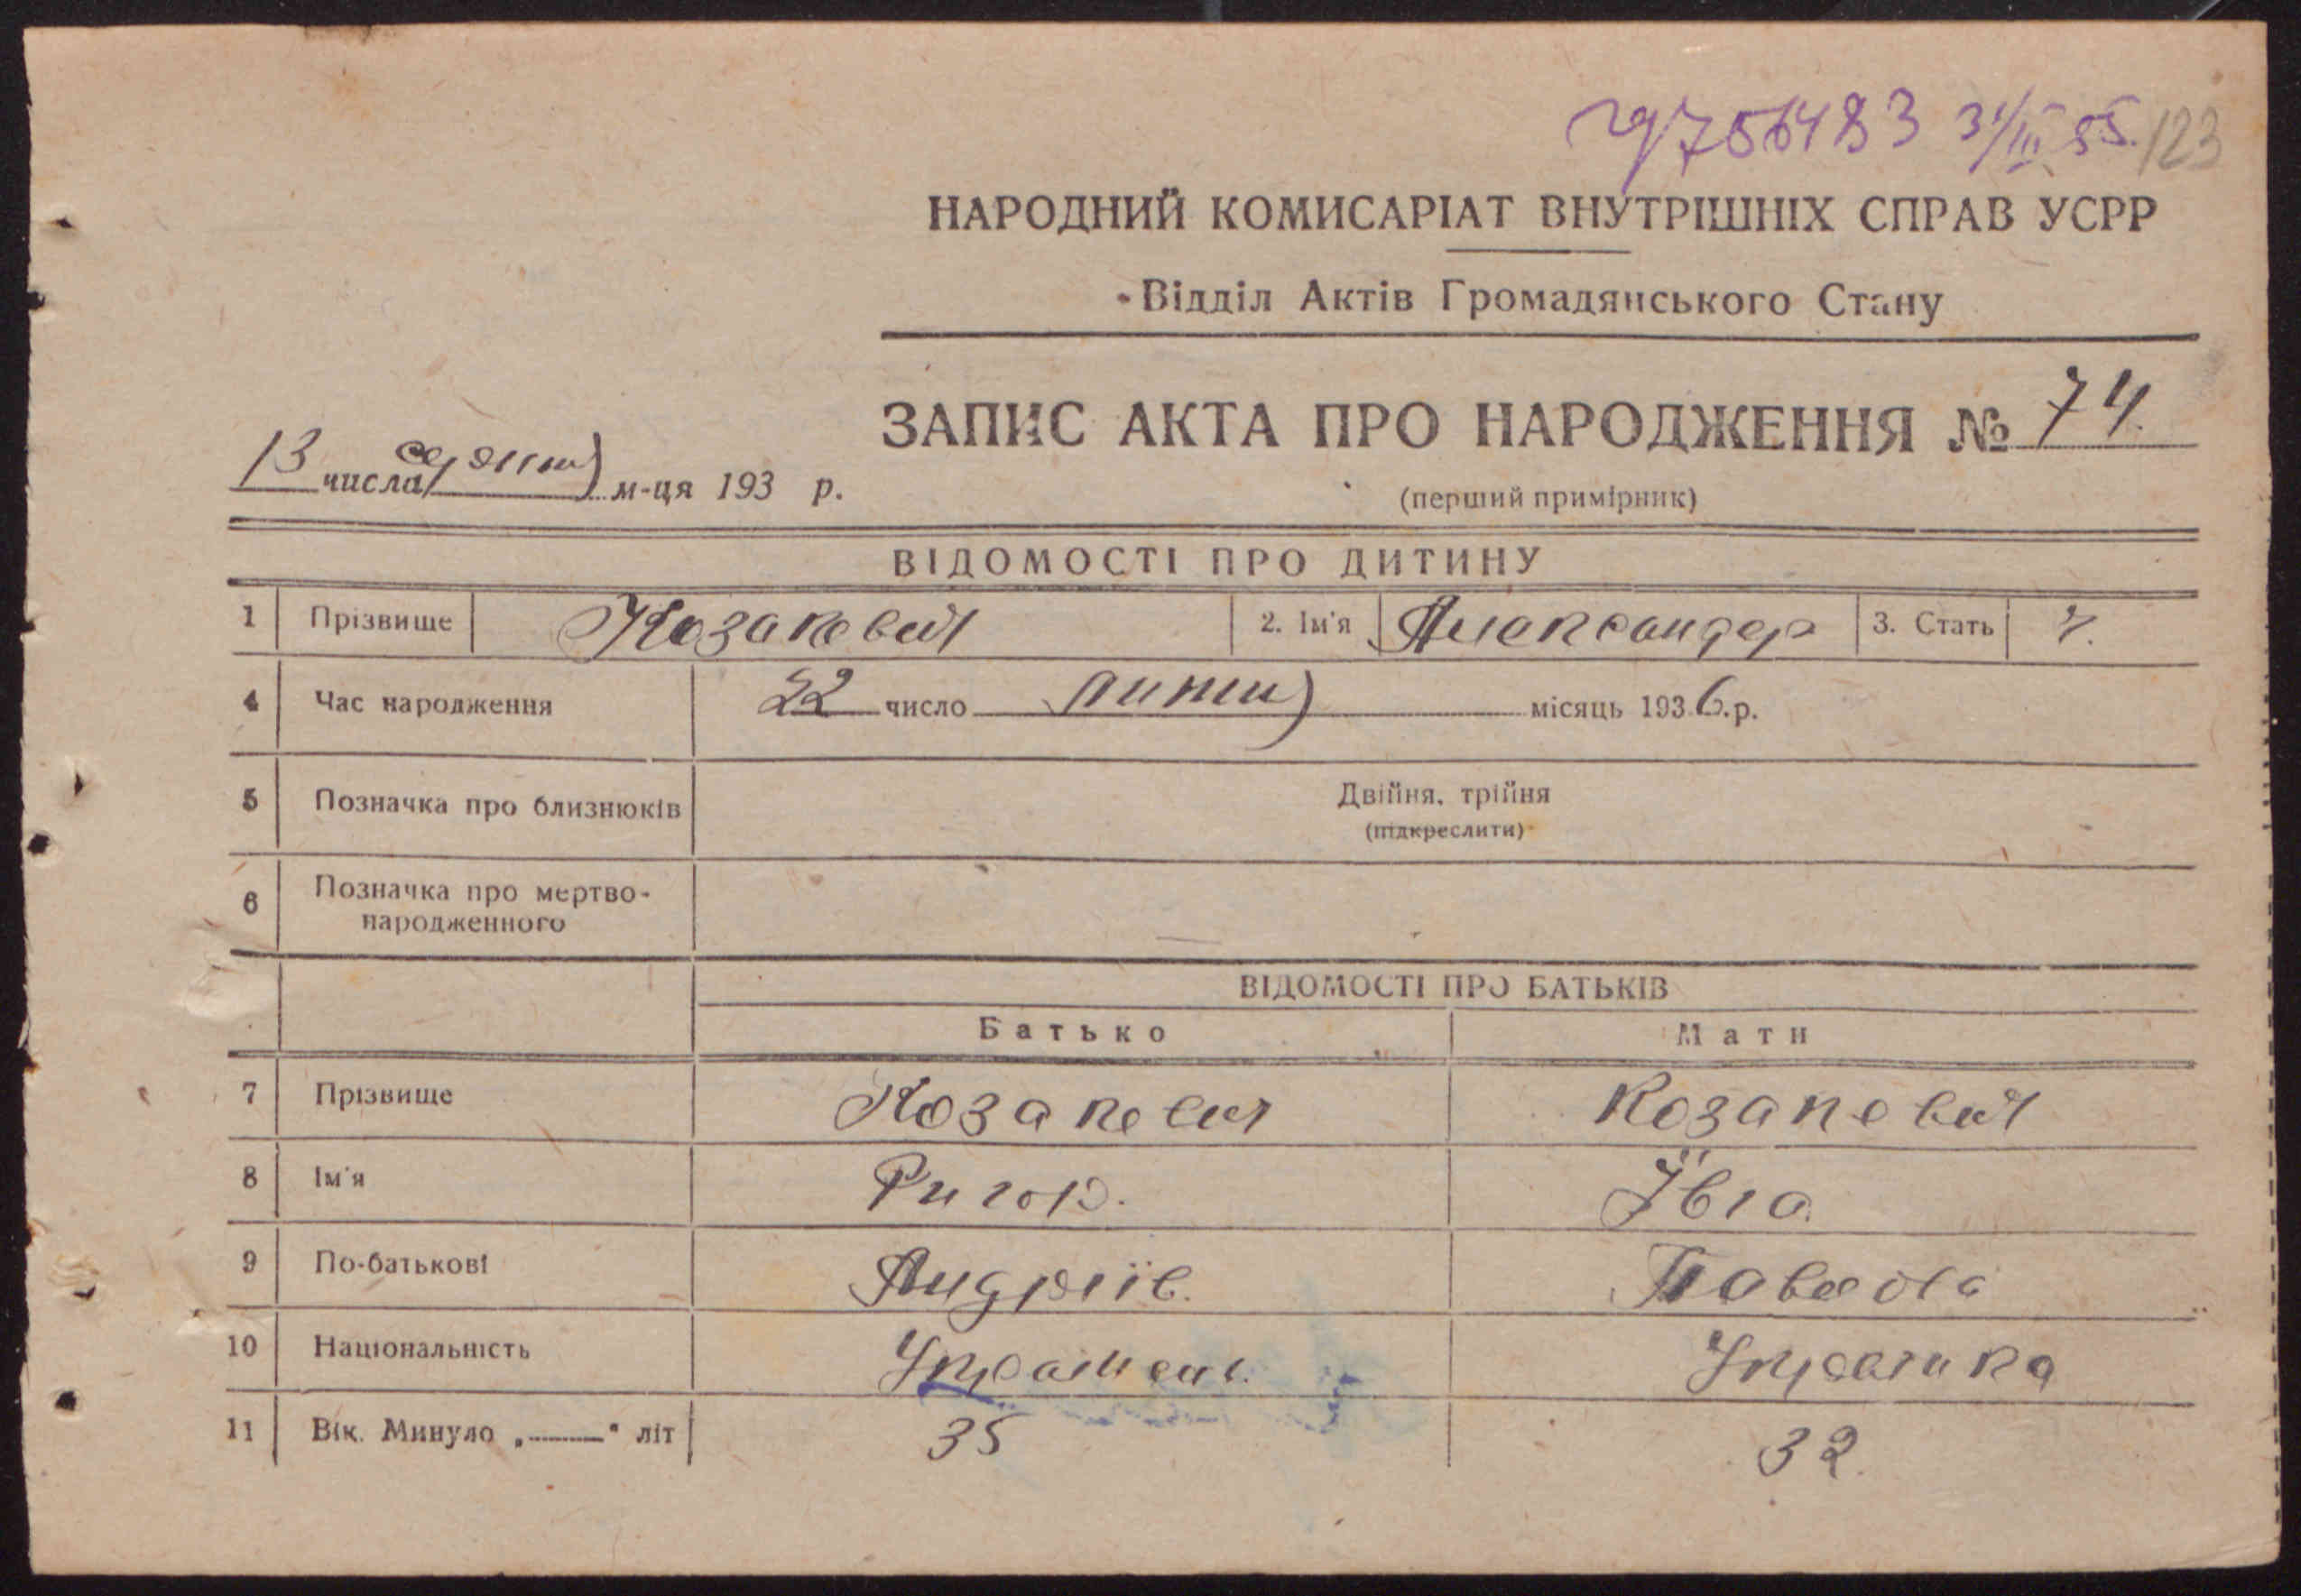 756483 31/III 85. 123
НАРОДНИЙ КОМИСАРІАТ ВНУТРІШНІХ СПРАВ УСРР
Відділ Актів Громадянського Стану
ЗАПИС АКТА ПРО НАРОДЖЕННЯ № 74.
13 числа м-ця 193 р.
(перший примірник)
ВІДОМОСТІ ПРО ДИТИНУ
1 Прізвище Козакевич 2. Ім'я Александер 3. Стать Ч.
4 Час народження 22 число місяць 1936.р.
5 Позначка про близнюків Двійня, трійня
(підкреслити)
6 Позначка про мертво-
народженного
ВІДОМОСТІ ПРО БАТЬКІВ
Батько Мати
7 Прізвище Козакевич Козакевич
8 Ім'я Ригор. Ївга
9 По-батькові Андріїв. Павлова
10 Національність Українка
11 Вік. Минуло „ “ літ 35 32.